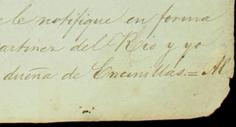 le notifique en forma
artinez del Rio y yo
dueña de Encinillas.= Al